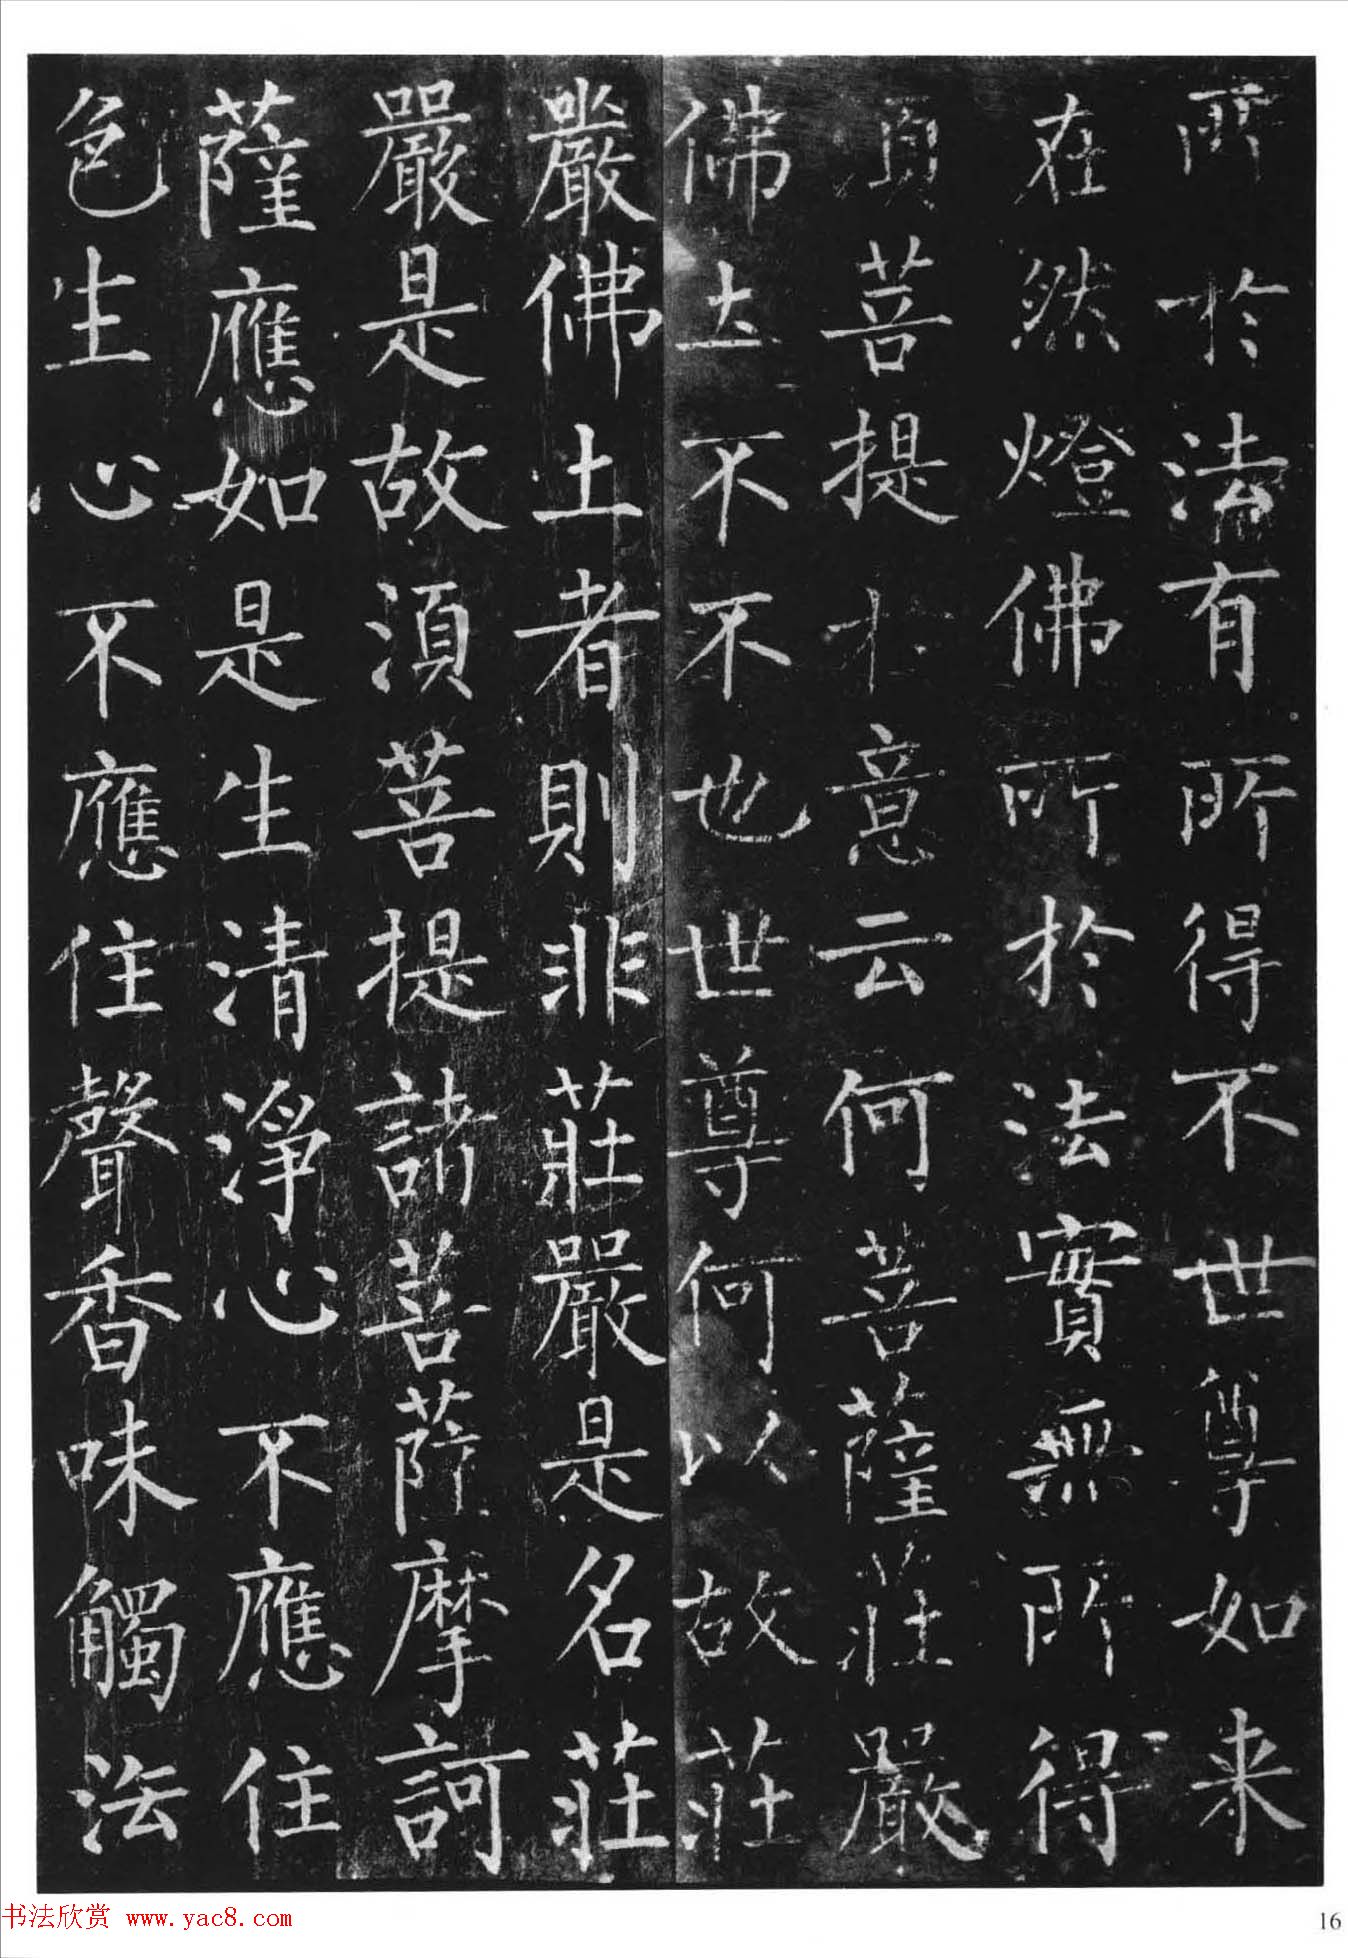 所於法有所得不世尊如来
在然燈佛所於法實無所得
須菩提於意云何菩薩莊嚴
佛土不不也世尊何以故莊
嚴佛土者則非莊嚴是名莊
嚴是故須菩提諸菩薩摩訶
薩應如是生清淨心不應住
色生心不應住聲香味觸法
书法欣赏 www.yac8.com
16